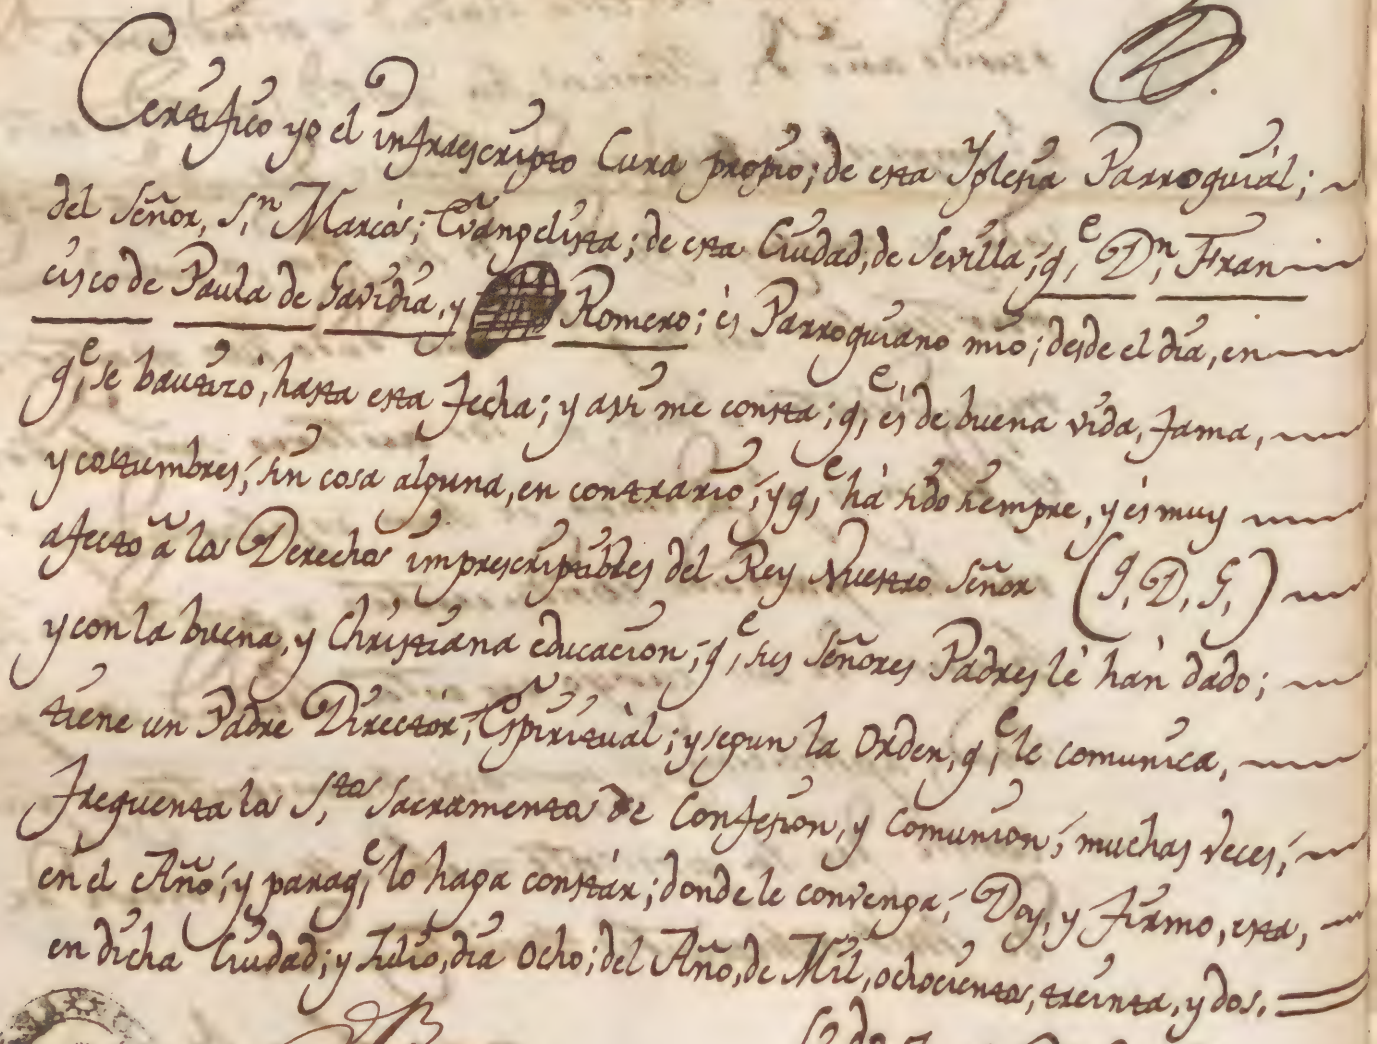 Certifico yo el infraescripto Cura propio; de esta Yglesia Parroquial;
del Señor, S.n Marcos; Evangelista; de esta Ciudad, de Sevilla; q.e D.n Fran
cisco de Paula de Gavidia, y Romero; és Parroquiano mio; desde el dia, en
q.e se bautizó, hasta esta fecha; y asi me consta; q.e és de buena vida, fama,
y costumbres; sin cosa alguna, en contrario; y q.e há sido siempre, y és muy
afecto à los Derechos imprescriptibles del Rey Nuestro Señor (q, D, G,)
y con la buena, y Christiana educacion; q.e sus Señores Padres lé hán dado;
tiene un Padre Directór; Espirituàl; y segun la Orden, q.e le comunica,
frequenta los S.tos Sacramentos de Confesion, y Comunion; muchas veces;
en el Año; y paraq.e lo haga constár; donde le convenga; Doy, y firmo, esta,
en dicha Ciudad; y Julio, dia ocho; del Año, de Mil, ochocientos, treinta, y dos.